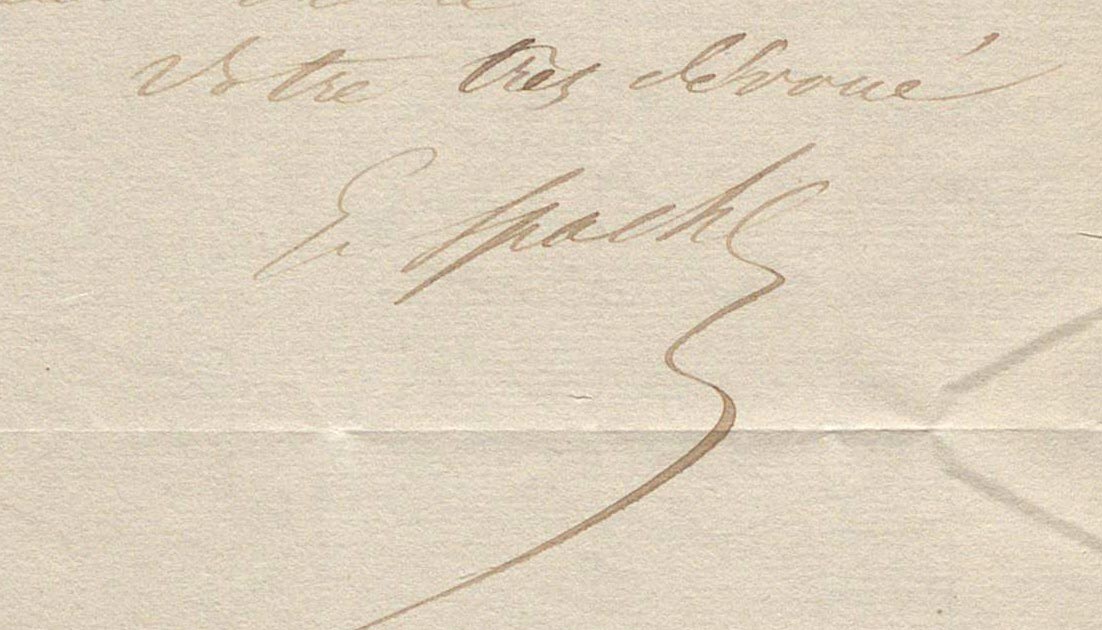 Votre très dévoué
E. Spach